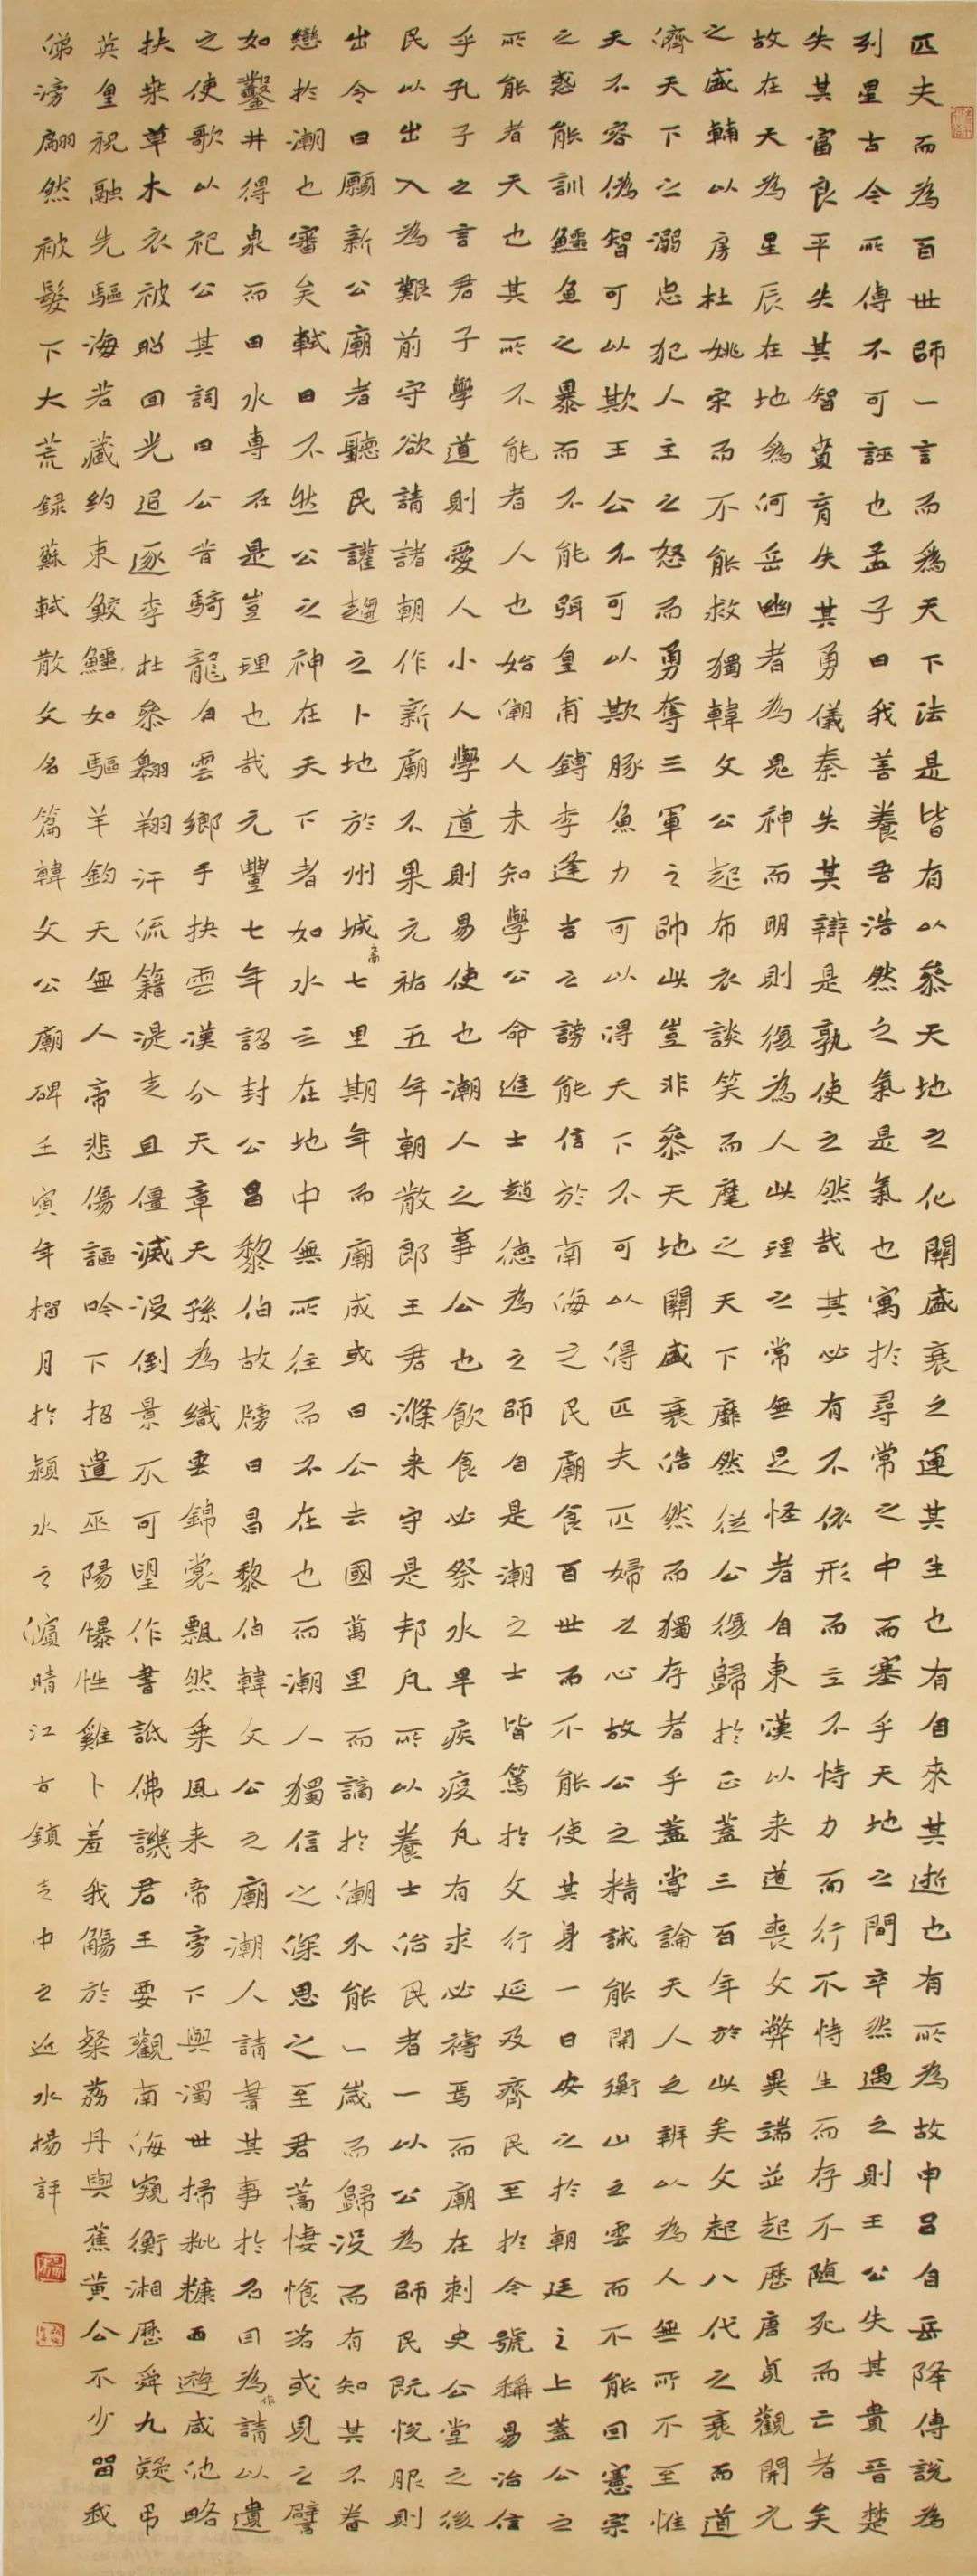 匹夫而為百世師一言而為天下法是皆有以參天地之化關盛衰之運其生也有自來其逝也有所為故申呂自岳降傅說為
列星古今所傳不可誣也孟子曰我善養吾浩然之氣是氣也寓於尋常之中而塞乎天地之間卒然遇之則王公失其貴晉楚
失其富良平失其智賁育失其勇儀秦失其辯是孰使之然哉其必有不依形而立不恃力而行不恃生而存不隨死而亡者矣
故在天為星辰在地為河岳幽者為鬼神而明則復為人此理之常無足怪者自東漢以来道喪文弊異端並起歷唐貞觀開元
之盛輔以房杜姚宋而不能救獨韓文公起布衣談笑而麾之天下靡然從公復歸於正蓋三百年於此矣文起八代之衰而道
濟天下之溺忠犯人主之怒而勇奪三軍之帥此豈非參天地關盛衰浩然而獨存者乎蓋嘗論天人之辨以為人無所不至惟
天不容偽智可以欺王公不可以欺豚魚力可以得天下不可以得匹夫匹婦之心故公之精誠能開衡山之雲而不能回憲宗
之惑能訓鱷魚之暴而不能弭皇甫鎛李逢吉之謗能信於南海之民廟食百世而不能使其身一日安之於朝廷之上蓋公之
所能者天也其所不能者人也始潮人未知學公命進士趙德為之師自是潮之士皆篤於文行延及齊民至於今號稱易治信
乎孔子之言君子學道則愛人小人學道則易使也潮人之事公也飲食必祭水旱疾疫凡有求必禱焉而廟在刺史公堂之後
民以出入為艱前守欲請諸朝作新廟不果元祐五年朝散郎王君滌来守是邦凡所以養士治民者一以公為師民既悅服則
出令曰願新公廟者聽民讙趨之卜地於州城南七里期年而廟成或曰公去國萬里而謫於潮不能一歲而歸沒而有知其不眷
戀於潮也審矣軾曰不然公之神在天下者如水之在地中無所往而不在也而潮人獨信之深思之至君蒿悽愴若或見之譬
如鑿井得泉而曰水專在是豈理也哉元豐七年詔封公昌黎伯故牓曰昌黎伯韓文公之廟潮人請書其事於石因為作請以遺
之使歌以祀公其詞曰公昔騎龍白雲鄉手抉雲漢分天章天孫為織雲錦裳飄然乘風来帝旁下與濁世掃秕糠西遊咸池略
扶桒草木衣被昭回光追逐李杜參翱翔汗流籍湜走且僵滅沒倒景不可望作書詆佛譏君王要觀南海窺衡湘歷舜九疑弔
英皇祝融先驅海若藏約束鮫鱷如驅羊鈞天無人帝悲傷謳吟下招遣巫陽犦牲雞卜羞我觴於粲荔丹與蕉黃公不少留我
涕滂翩然被髮下大荒録蘇軾散文名篇韓文公廟碑壬寅年榴月於潁水之濱晴江古鎮中之近水楊評